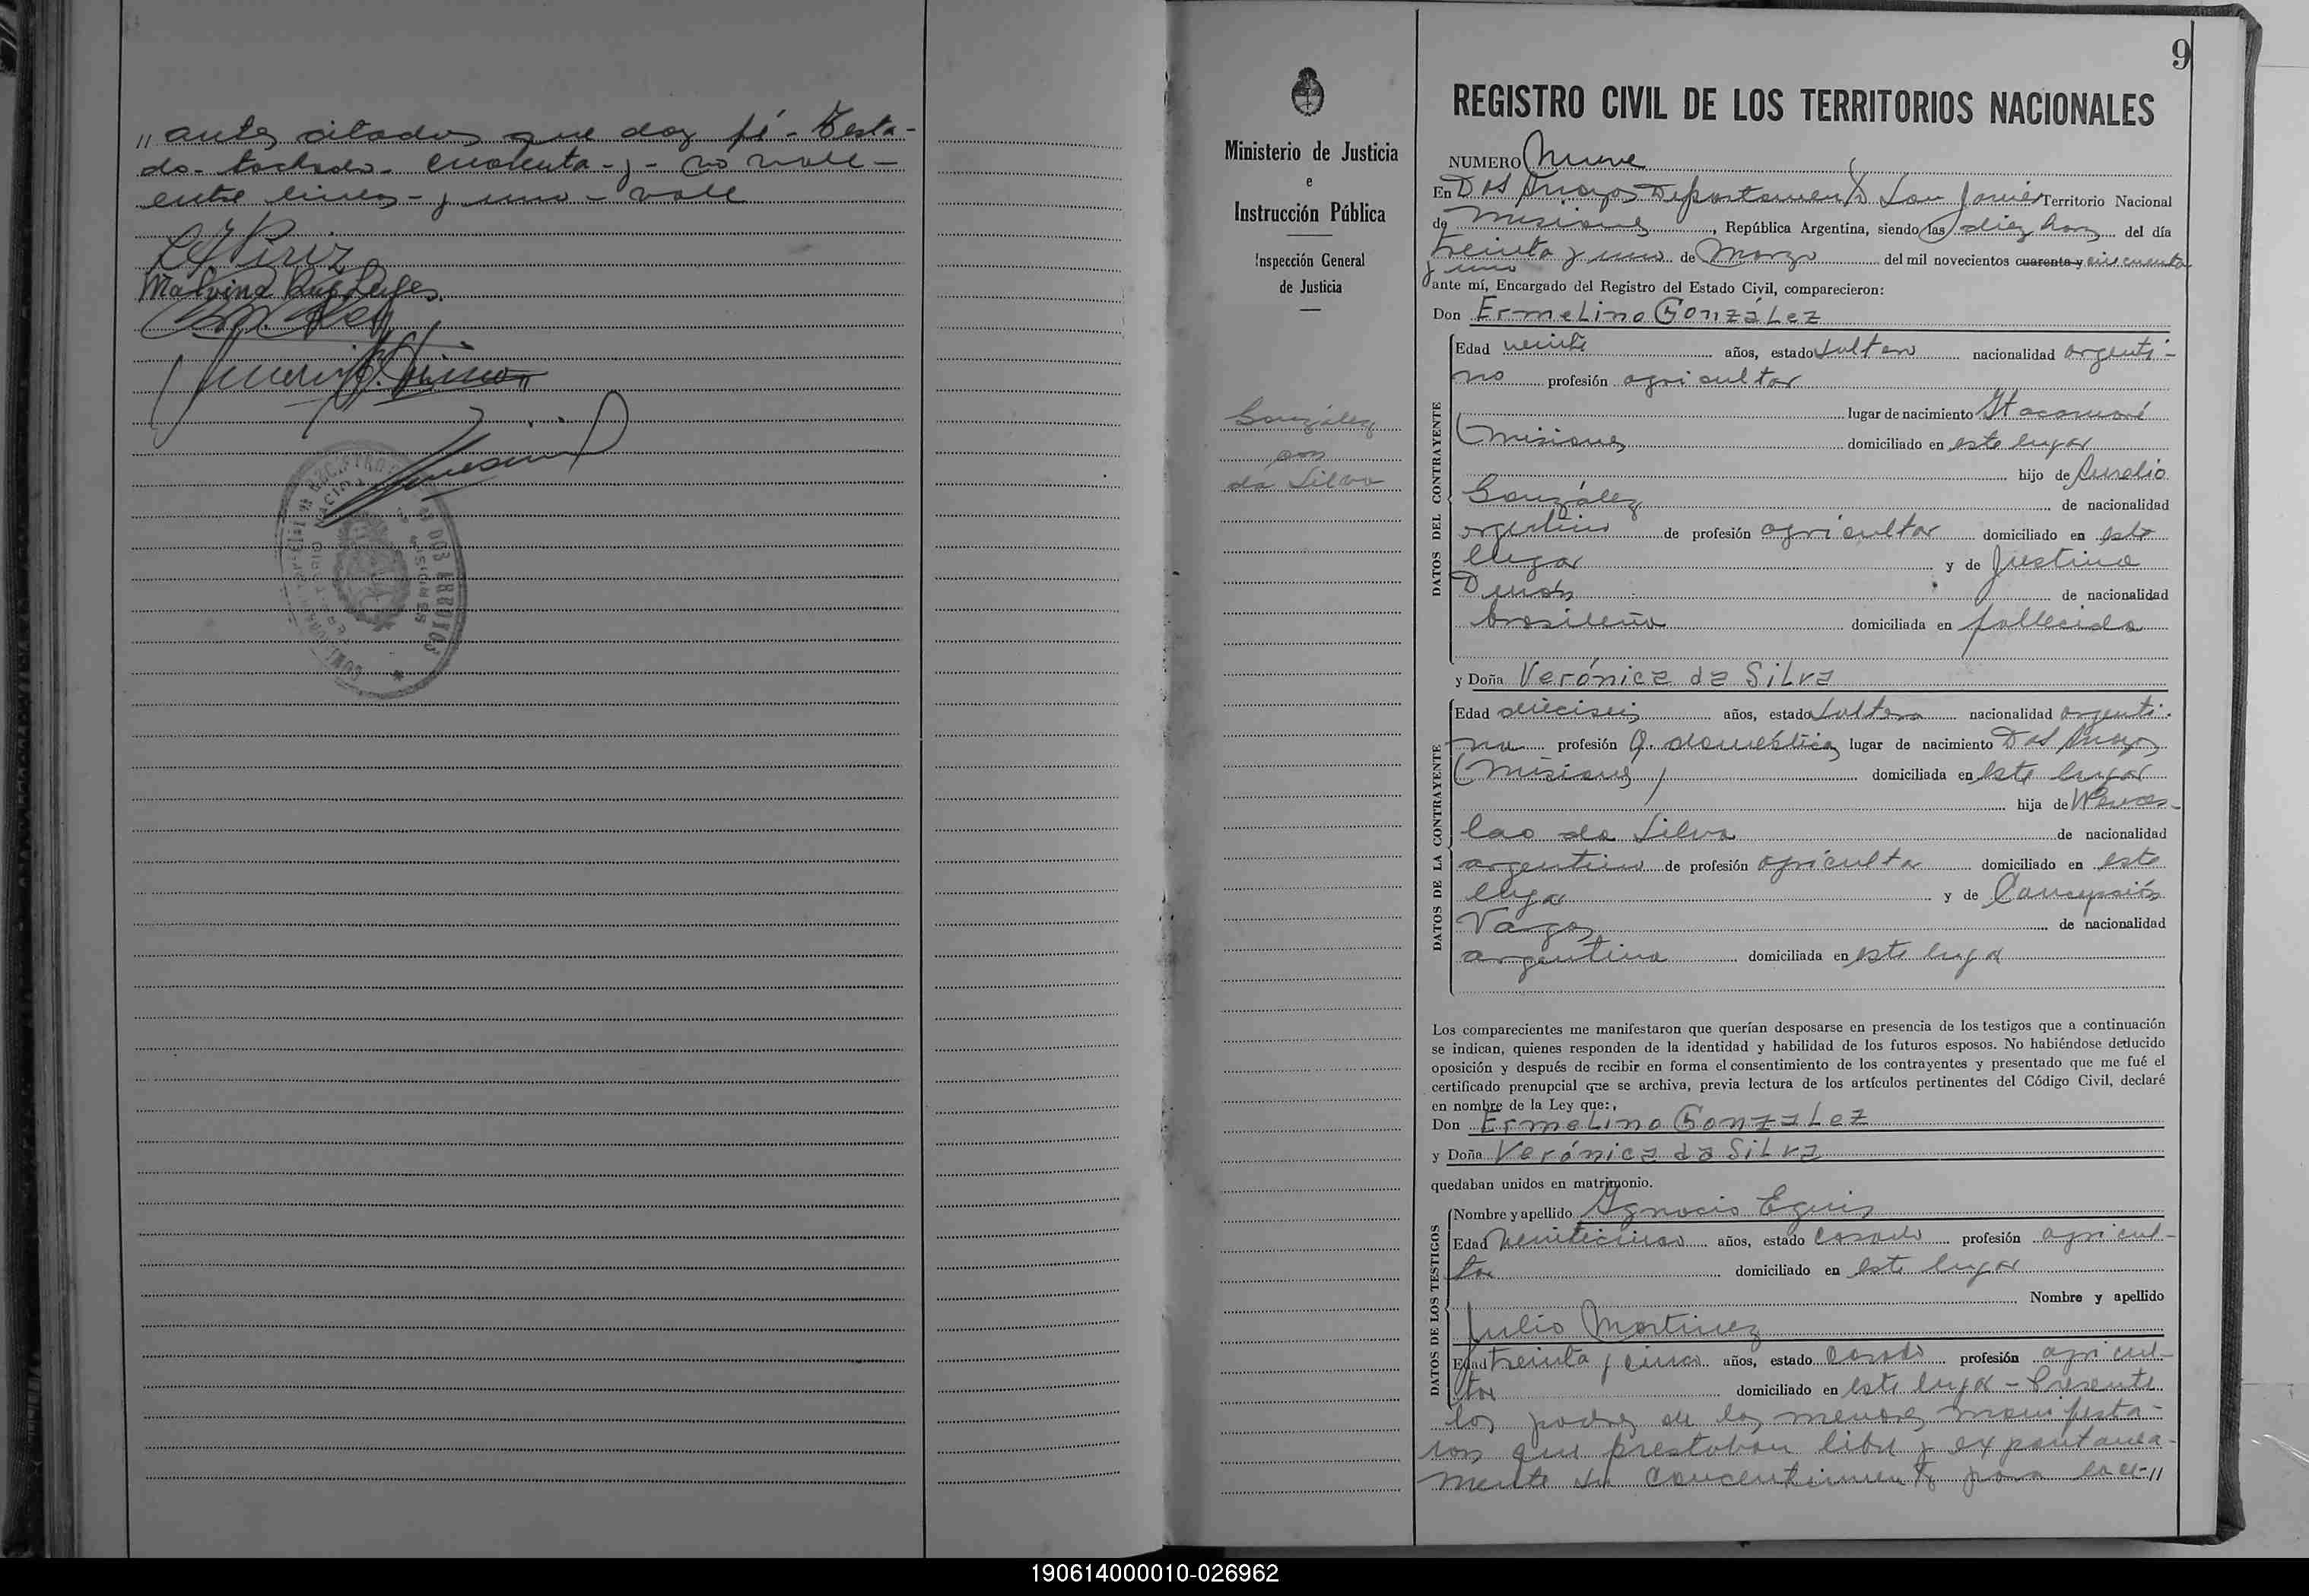 „ antes citados que doy fé - Testa-
do - tachado - cuarenta - y - no vale -
entre lineas - y uno - vale
Malvina
REGISTRO
DOS ARROYOS
MISIONES
9
Ministerio de Justicia
e
Instrucción Pública
Inspección General
de Justicia
González
con
da Silva
REGISTRO CIVIL DE LOS TERRITORIOS NACIONALES
NUMERO Nueve
En Dos Arroyos Departamento San Javier Territorio Nacional
de Misiones, República Argentina, siendo las diez horas del día
treinta y uno de Marzo del mil novecientos cuarenta y cincuenta
y uno
ante mí, Encargado del Registro del Estado Civil, comparecieron:
Don Ermelino González
DATOS DEL CONTRAYENTE
Edad veinte años, estado soltero nacionalidad argenti-
no profesión agricultor
lugar de nacimiento Itacaruaré
(Misiones domiciliado en este lugar
hijo de Aurelio
González de nacionalidad
argentino de profesión agricultor domiciliado en este
lugar y de Justina
de nacionalidad
brasileña domiciliada en fallecida
y Doña Verónica da Silva
DATOS DE LA CONTRAYENTE
Edad dieciseis años, estado soltera nacionalidad argenti-
na profesión Q. domésticos lugar de nacimiento Dos Arroyos
(Misiones) domiciliada en este lugar
hija de Wences-
lao da Silva de nacionalidad
argentino de profesión agricultor domiciliado en este
lugar y de Concepción
Vargas de nacionalidad
argentina domiciliada en este lugar
Los comparecientes me manifestaron que querían desposarse en presencia de los testigos que a continuación
se indican, quienes responden de la identidad y habilidad de los futuros esposos. No habiéndose deducido
oposición y después de recibir en forma el consentimiento de los contrayentes y presentado que me fué el
certificado prenupcial que se archiva, previa lectura de los artículos pertinentes del Código Civil, declaré
en nombre de la Ley que:,
Don Ermelino Gonzalez
y Doña Verónica da Silva
quedaban unidos en matrimonio.
DATOS DE LOS TESTIGOS
Nombre y apellido Ignacio Eguis
Edad veinticinco años, estado casado profesión agricul-
tor domiciliado en este lugar
Nombre y apellido
Julio Martinez
Edad treinta y cinco años, estado casado profesión agricul-
tor domiciliado en este lugar - Presente
los padres de los menores manifesta-
ron que prestaban libre y expontanea-
mente su concentimiento para
190614000010-026962